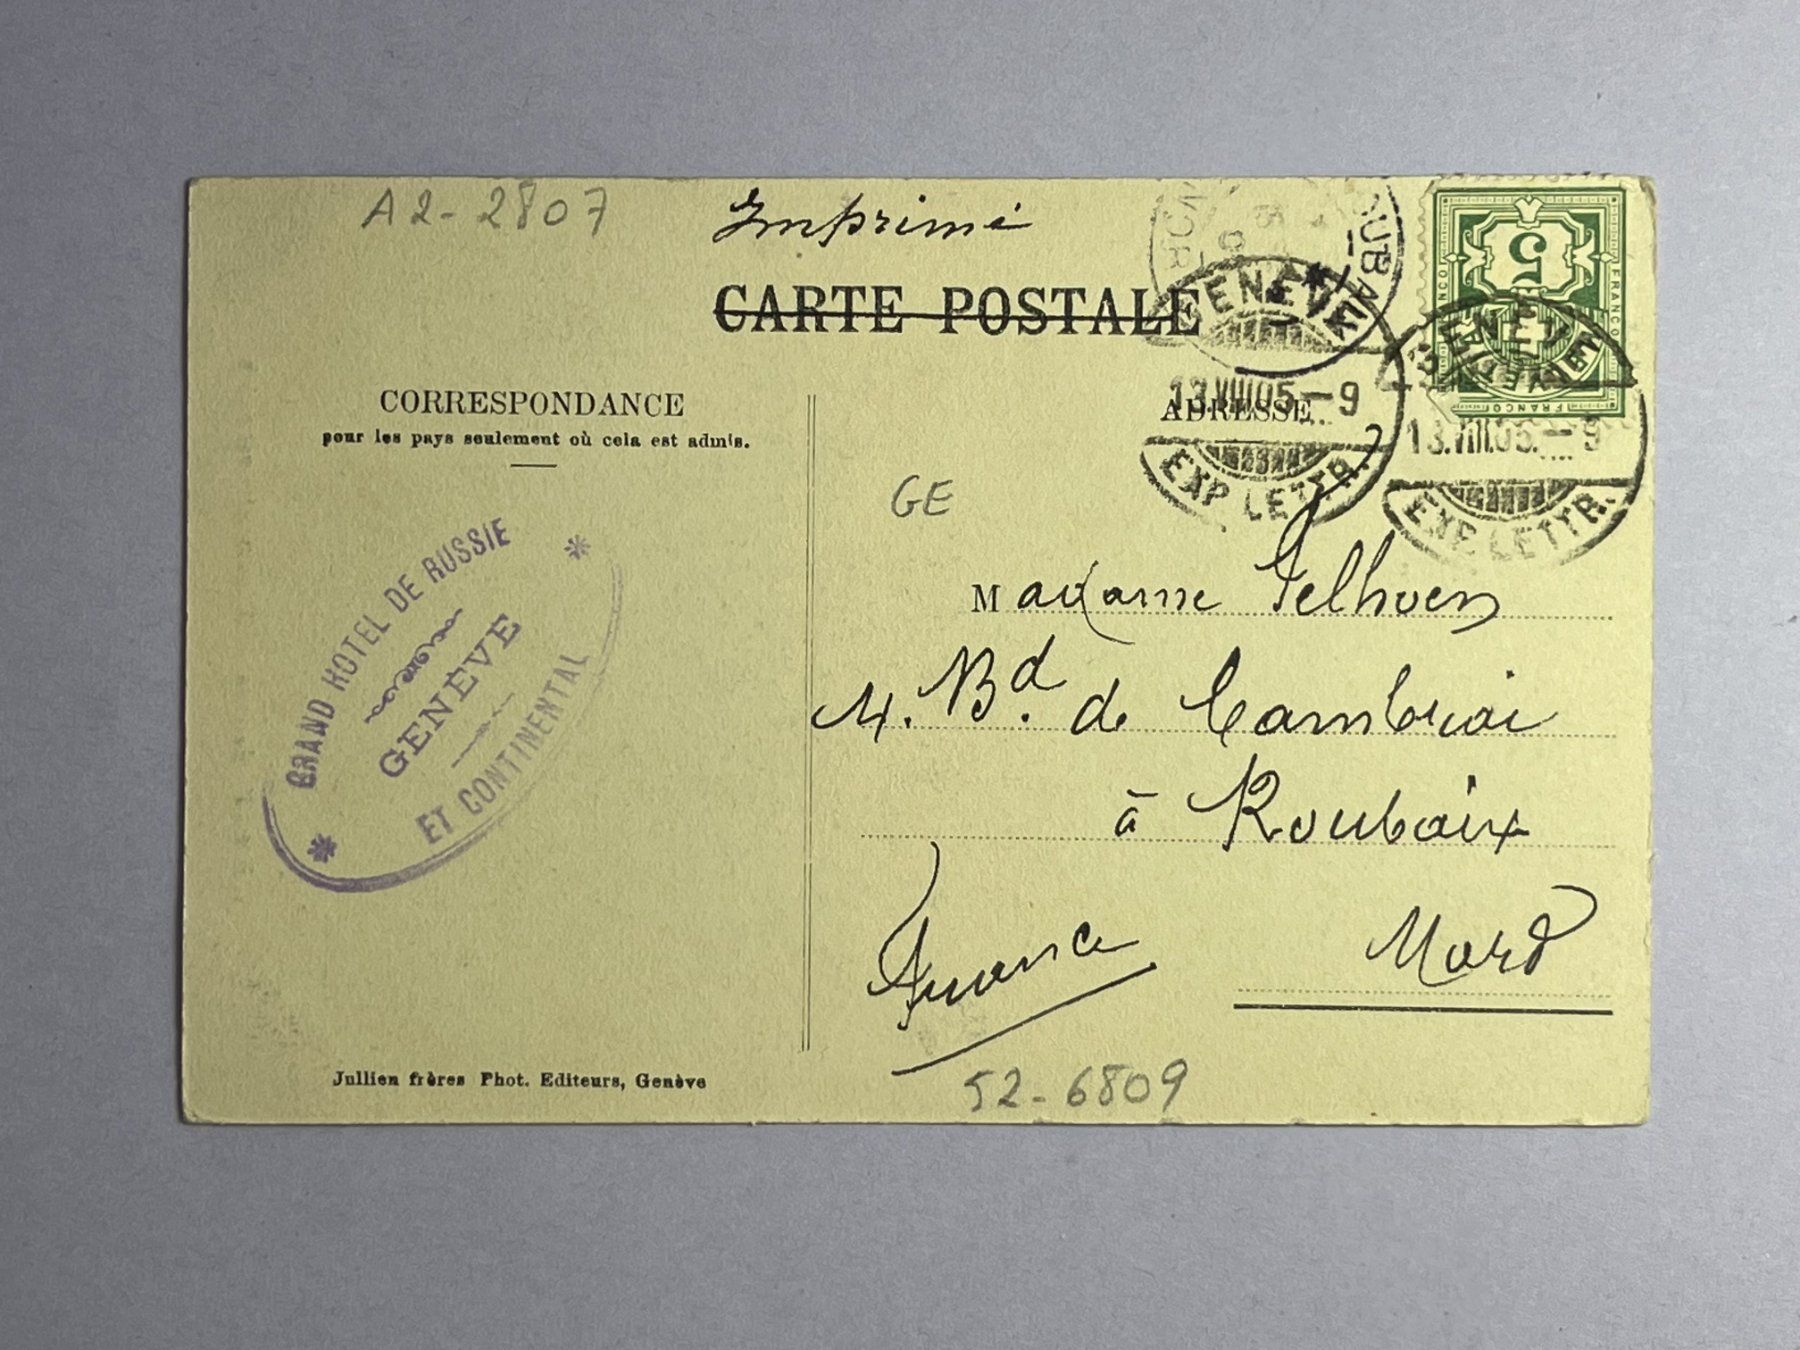 A2-2807
Imprimé
CARTE POSTALE
ROUBAIX
GENÈVE
13.VIII.05.-9
EXP. LETTR.
GENÈVE
13.VIII.05.-9
EXP. LETTR.
5
FRANCO
FRANCO
FRANCO
CORRESPONDANCE
pour les pays seulement où cela est admis.
ADRESSE
GE
GRAND HOTEL DE RUSSIE
GENÈVE
ET CONTINENTAL
Madame
4. Bd. de Cambrai
à Roubaix
France
Nord
Jullien frères Phot. Editeurs, Genève
52-6809